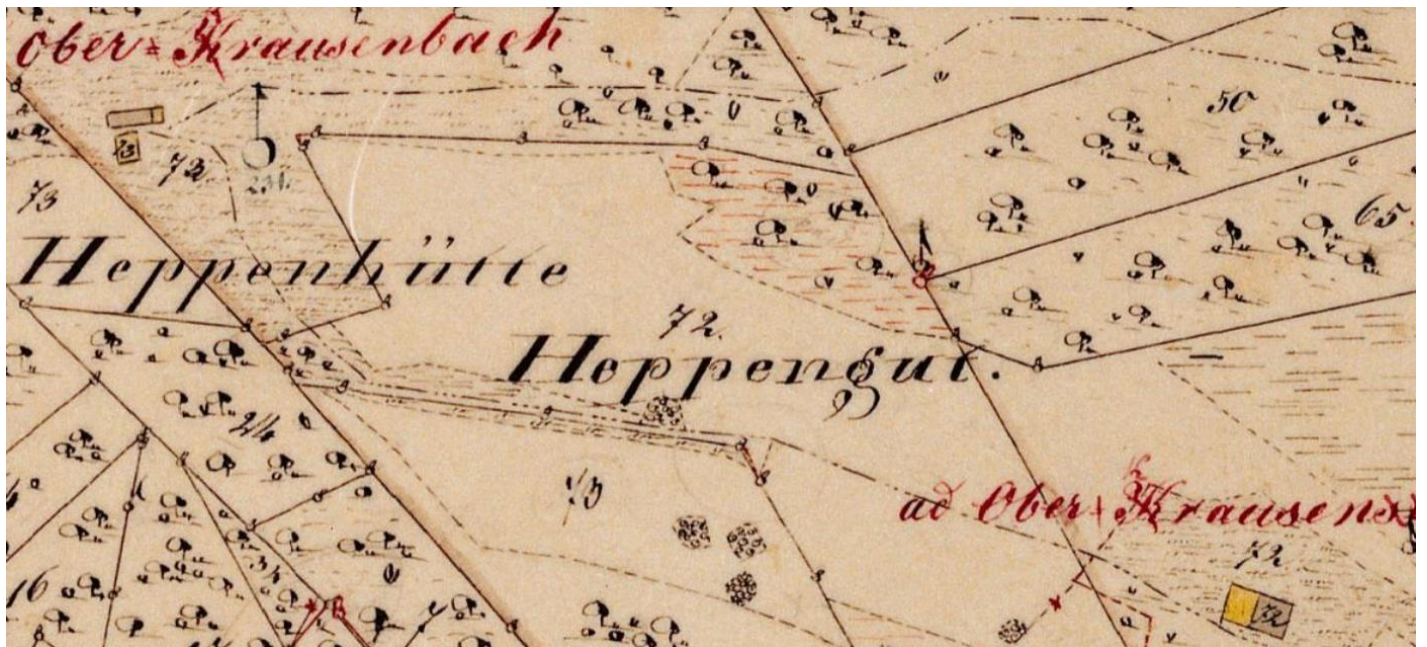 Ober-Krausenbach
50
73
72
73
65
Heppenhütte
72.
Heppengut.
24
73
ad Ober-Krausens
72
72
16